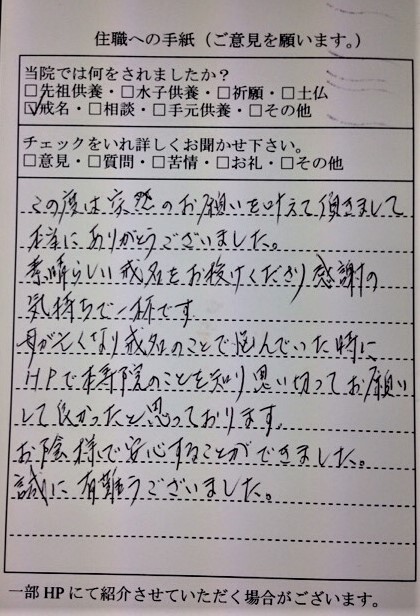 住職への手紙（ご意見を願います。）
当院では何をされましたか？
□先祖供養・□水子供養・□祈願・□土仏
☑戒名・□相談・□手元供養・□その他
チェックをいれ詳しくお聞かせ下さい。
□意見・□質問・□苦情・□お礼・□その他
この度は突然のお願いを叶えて頂きまして
本当にありがとうございました。
素晴らしい戒名をお授けくださり感謝の
気持ちで一杯です。
母が亡くなり戒名のことで悩んでいた時に
HPで本寿院のことを知り思い切ってお願い
して良かったと思っております。
お陰様で安心することができました。
誠に有難うございました。
一部HPにて紹介させていただく場合がございます。